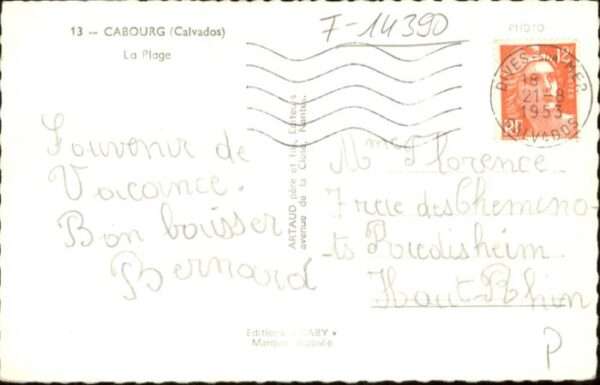 13 -- CABOURG (Calvados)
La Plage
F-14390
PHOTO
12F
DIVES-S-MER
18
21-8
1953
CALVADOS
Souvenir de
Vacance.
Bon baisser
Bernard
ARTAUD père et fils, Éditeurs
avenue de la Close, Nantes.
Mme Florence
7 rue des Chemino-
ts Riedisheim
Haut-Rhin
Editions « GABY »
P